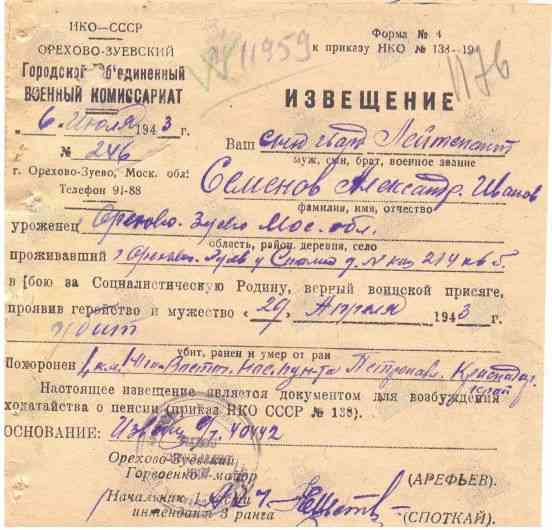 НКО—СССР
ОРЕХОВО-ЗУЕВСКИЙ
Городской Об'единенный
ВОЕННЫЙ КОМИССАРИАТ
„6" Июля 1943 г.
№ 246
г. Орехово-Зуево, Моск. обл.
Телефон 91-88
11959
Форма № 4
к приказу НКО № 138—194
1176
ИЗВЕЩЕНИЕ
Ваш сын гвард Лейтенант
муж, сын, брат, военное звание
Семенов Александр Иванов
фамилия, имя, отчество
уроженец Орехово-Зуево Мос. обл.
область, район, деревня, село
проживавший г Орехово-Зуев у д. № 214 кв 6.
в бою за Социалистическую Родину, верный воинской присяге,
проявив геройство и мужество „29" Апреля 1943 г.
убит
убит, ранен и умер от ран
Похоронен 1 км. Насел пункта Краснодар. край
Настоящее извещение является документом для возбуждения
ходатайства о пенсии (приказ НКО СССР № 138).
ОСНОВАНИЕ: 40442
Орехово-Зуевский
Горвоенком-майор
(АРЕФЬЕВ).
Начальник 1 части
интендант 3 ранга
(СПОТКАЙ).